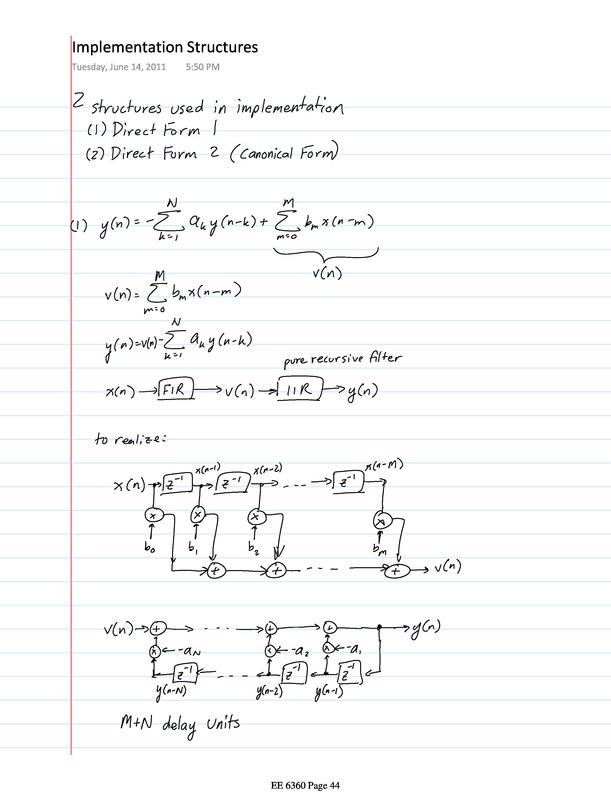 Implementation Structures
Tuesday, June 14, 2011 5:50 PM
2 structures used in implementation
(1) Direct Form 1
(2) Direct Form 2 (Canonical Form)
(1) y(n) = - N Σ k=1 a_k y(n-k) + M Σ m=0 b_m x(n-m)
v(n)
v(n) = M Σ m=0 b_m x(n-m)
y(n) = v(n) - N Σ k=1 a_k y(n-k)
pure recursive filter
x(n) → FIR → v(n) → IIR → y(n)
to realize:
x(n-1) x(n-2) x(n-M)
x(n) → z⁻¹ → z⁻¹ → --- → z⁻¹
x x x x
b_0 b_1 b_2 b_m
+ → + --- → + → v(n)
v(n) → + → --- + → + → y(n)
x ← -a_N x ← -a_2 x ← -a_1
z⁻¹ ← --- z⁻¹ z⁻¹
y(n-N) y(n-2) y(n-1)
M+N delay units
EE 6360 Page 44